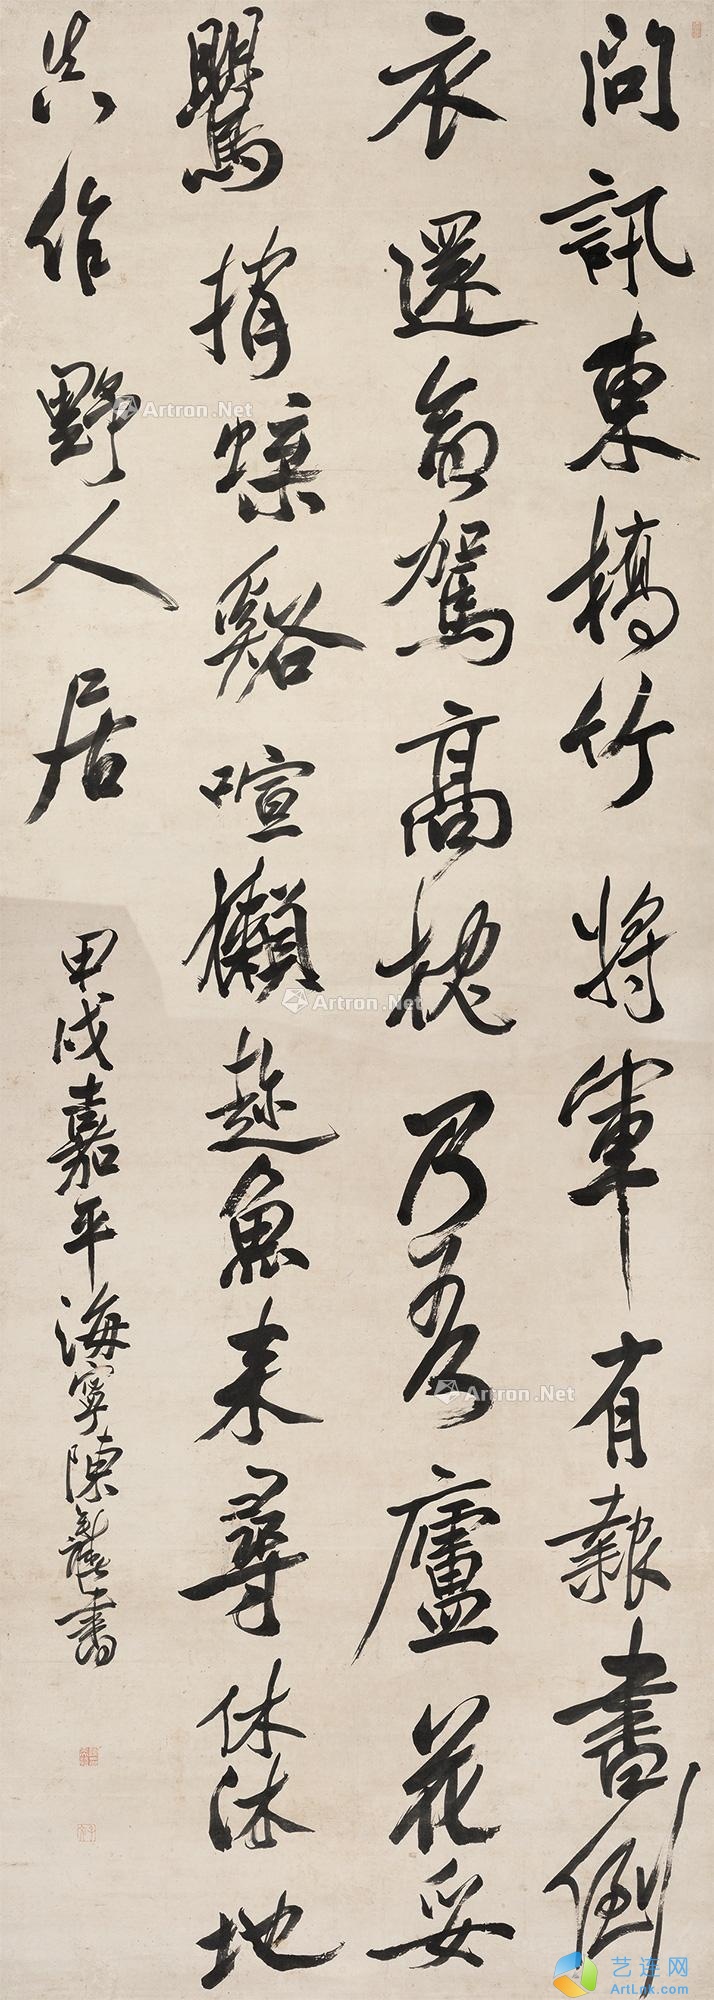 問訊東橋竹將軍有報書倒
衣還命駕高枕乃吾廬花妥
鸎捎蝶谿喧獺趁魚來尋休沐地
真作野人居
甲戌嘉平海寧陳奕禧書
Artron.Net
Artron.Net
Artron.Net
Artron.Net
Artron.Net
Artron.Net
艺连网
ArtLok.com